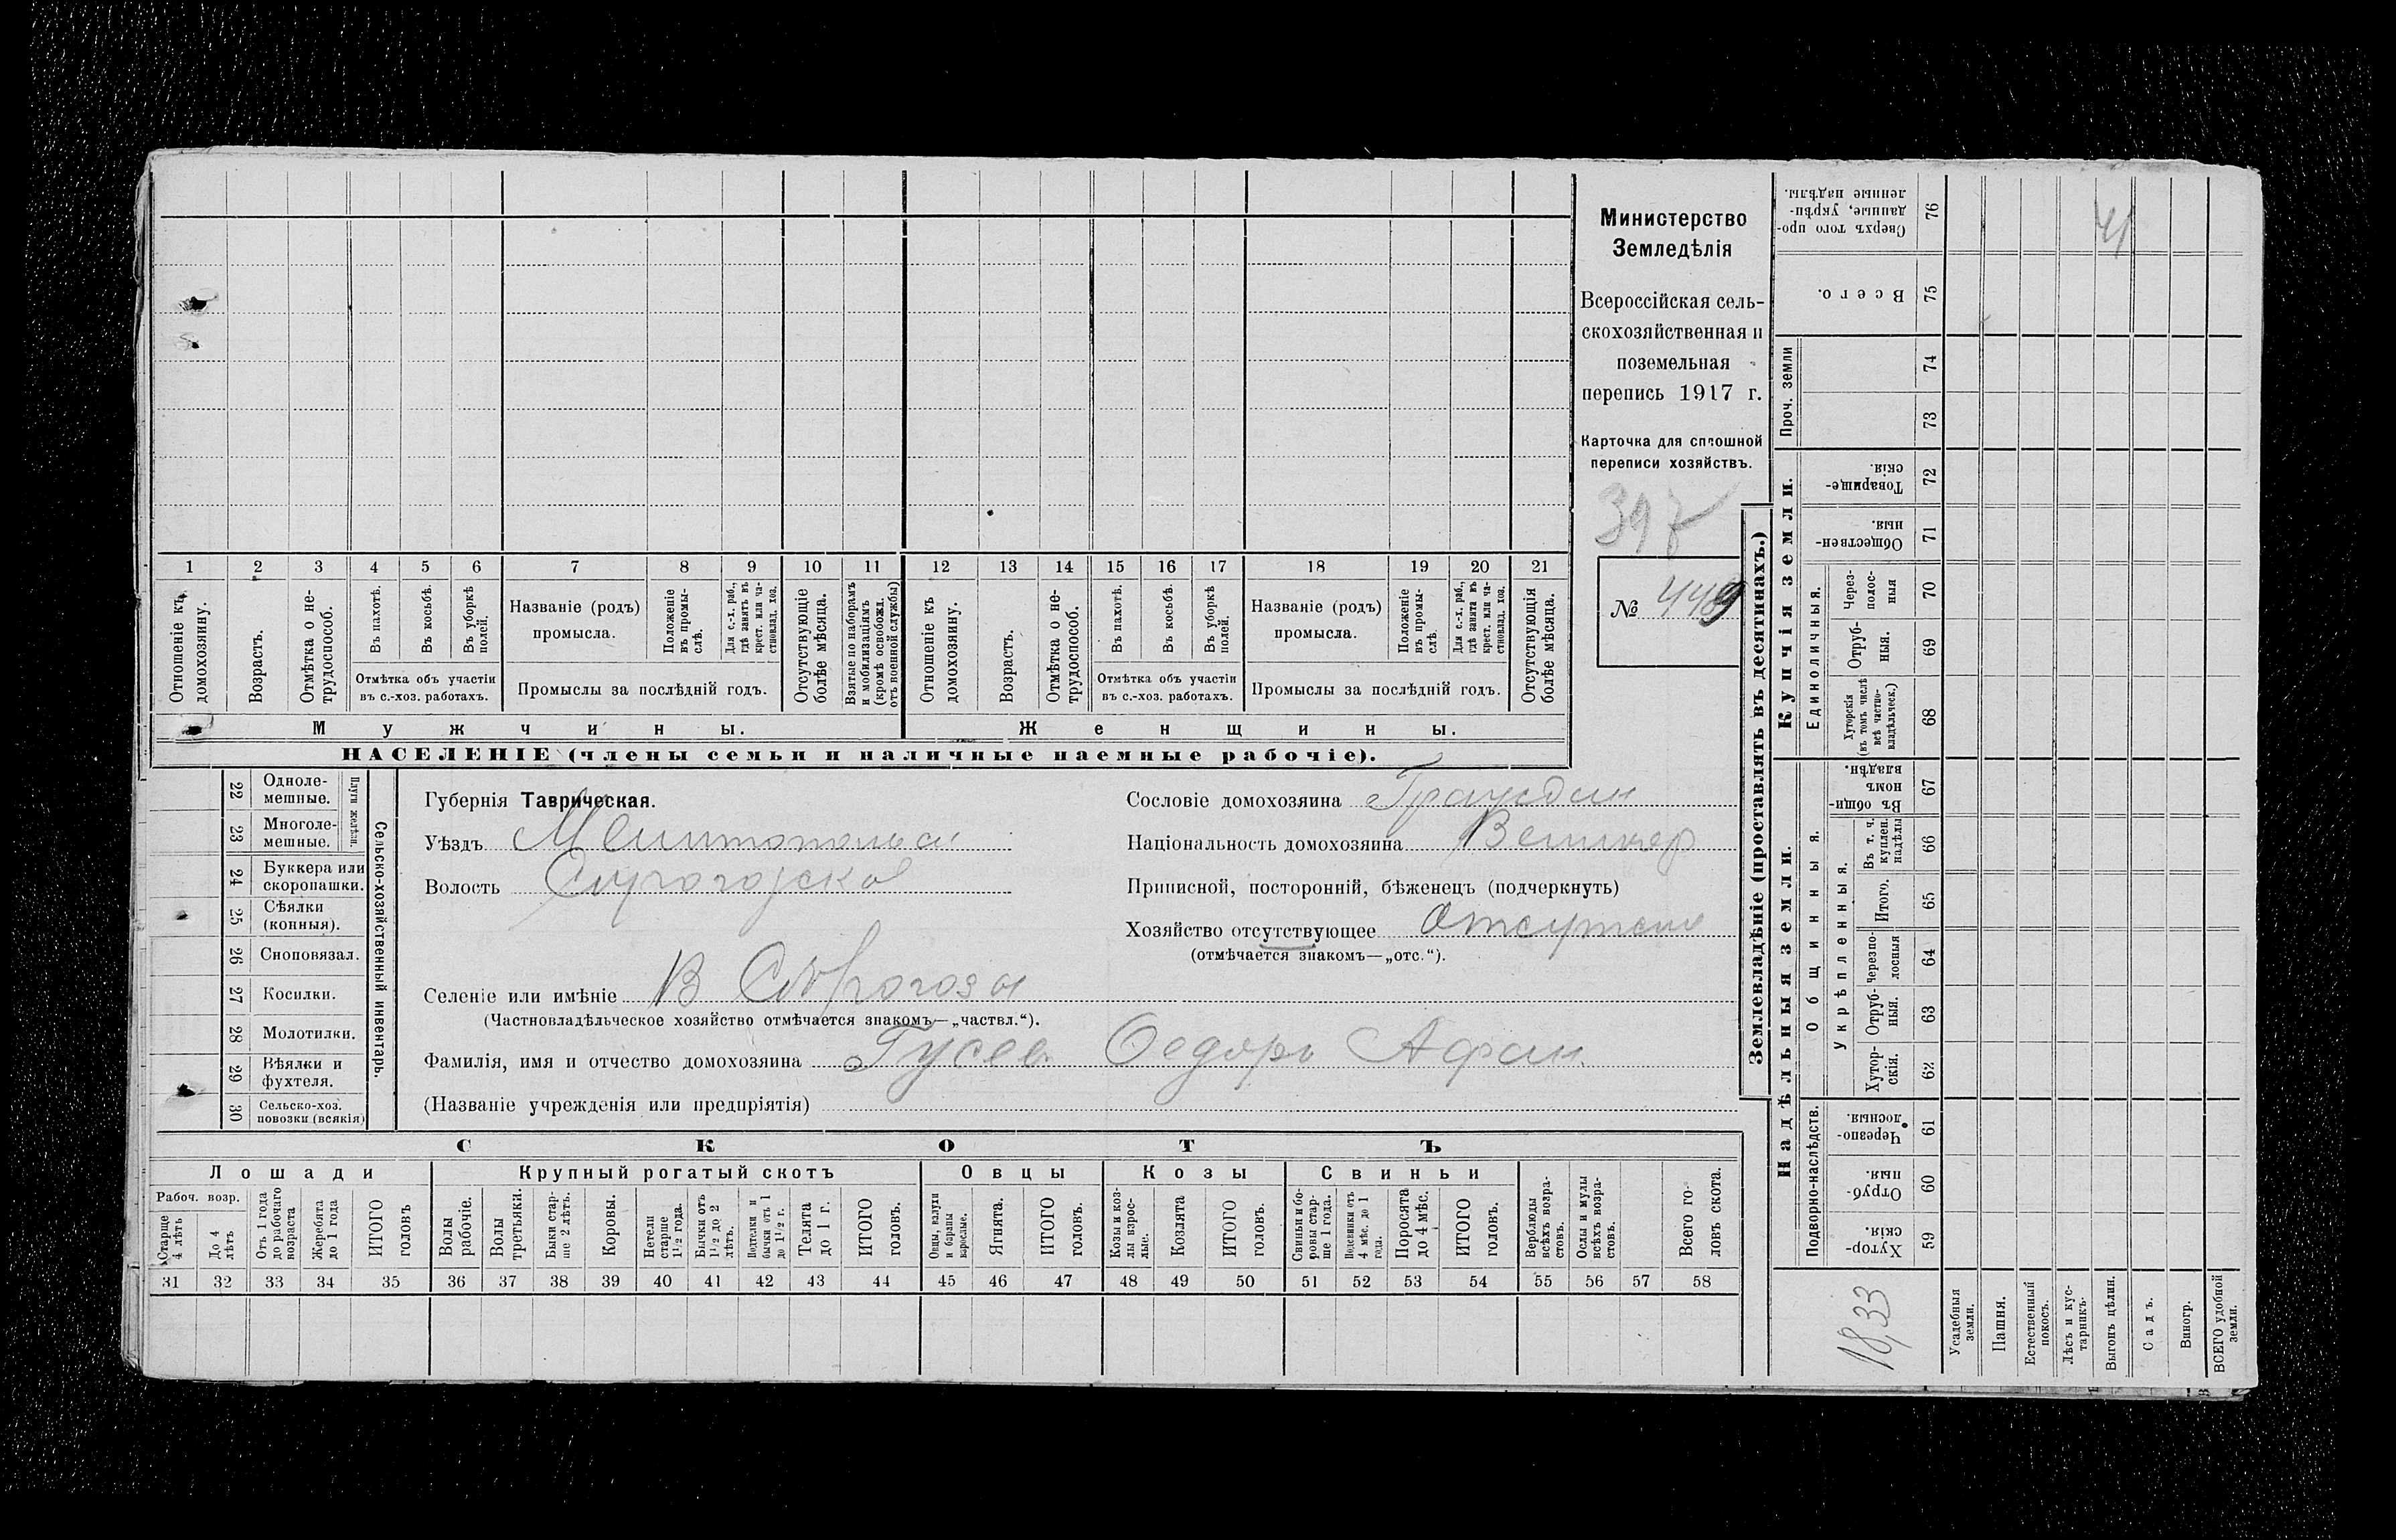 Министерство
Земледѣлія
Всероссійская сель-
скохозяйственная и
поземельная
перепись 1917 г.
Карточка для сплошной
переписи хозяйствъ.
397
№ 449
1 2 3 4 5 6 7 8 9 10 11 12 13 14 15 16 17 18 19 20 21
Отношеніе къ домохозяину.
Возрастъ.
Отмѣтка о не-трудоспособ.
Въ пахотѣ.
Въ косьбѣ.
Въ уборкѣ полей.
Отмѣтка объ участіи
въ с.-хоз. работахъ.
Названіе (родъ)
промысла.
Положеніе въ промы-слѣ.
Для с.-х. раб., гдѣ занятъ въ крест. или ча-стновлад. хоз.
Промыслы за послѣдній годъ.
Отсутствующіе болѣе мѣсяца.
Взятые по наборамъ и мобилизаціямъ (кромѣ освобожд. отъ военной службы)
Отношеніе къ домохозяину.
Возрастъ.
Отмѣтка о не-трудоспособ.
Въ пахотѣ.
Въ косьбѣ.
Въ уборкѣ полей.
Отмѣтка объ участіи
въ с.-хоз. работахъ.
Названіе (родъ)
промысла.
Положеніе въ промы-слѣ.
Для с.-х. раб., гдѣ занята въ крест. или ча-стновлад. хоз.
Промыслы за послѣдній годъ.
Отсутствующія болѣе мѣсяца.
Мужчины.
Женщины.
НАСЕЛЕНІЕ (члены семьи и наличные наемные рабочіе).
22 Одноле-мешные.
23 Многоле-мешные.
Плуги желѣзн.
24 Буккера или скоропашки.
25 Сѣялки (конныя).
26 Сноповязал.
27 Косилки.
28 Молотилки.
29 Вѣялки и фухтеля.
30 Сельско-хоз. повозки (всякія)
Сельско-хозяйственный инвентарь.
Губернія Таврическая.
Уѣздъ
Волость
Селеніе или имѣніе В
(Частновладѣльческое хозяйство отмѣчается знакомъ—„частвл.“).
Фамилія, имя и отчество домохозяина Гусев Федоръ Афан
(Названіе учрежденія или предпріятія)
Сословіе домохозяина
Національность домохозяина
Приписной, посторонній, бѣженецъ (подчеркнуть)
Хозяйство отсутствующее
(отмѣчается знакомъ—„отс.“).
СКОТЪ
Лошади
Крупный рогатый скотъ
Овцы
Козы
Свиньи
Рабоч. возр.
Старше 4 лѣтъ
До 4 лѣтъ
Отъ 1 года до рабочаго возраста
Жеребята до 1 года
ИТОГО головъ
Волы рабочіе.
Волы третьяки.
Быки стар-ше 2 лѣтъ.
Коровы.
Нетели старше 1 1/2 года.
Бычки отъ 1 1/2 до 2 лѣтъ.
Подтелки и бычки отъ 1 до 1 1/2 г.
Телята до 1 г.
ИТОГО головъ.
Овцы, валухи и бараны взрослые.
Ягнята.
ИТОГО головъ.
Козы и коз-лы взрос-лые.
Козлята
ИТОГО головъ.
Свиньи и бо-ровы стар-ше 1 года.
Подсвинки отъ 4 мѣс. до 1 года.
Поросята до 4 мѣс.
ИТОГО головъ.
Верблюды всѣхъ возра-стовъ.
Ослы и мулы всѣхъ возра-стовъ.
Всего го-ловъ скота.
31 32 33 34 35 36 37 38 39 40 41 42 43 44 45 46 47 48 49 50 51 52 53 54 55 56 57 58
Землевладѣніе (проставлять въ десятинахъ.)
Купчія земли.
Надѣльныя земли.
Сверхъ того про-данные, укрѣп-ленные надѣлы. 76
Всего. 75
Проч. земли
74
73
Товарище-скія. 72
Обществен-ныя. 71
Единоличныя.
Через-полос-ныя 70
Отруб-ныя. 69
Хуторскія (въ томъ числѣ всѣ частно-владѣльческ.) 68
Общинныя.
Въ общи-номъ владѣн. 67
Укрѣпленныя.
Въ т. ч. куплен. надѣлы 66
Итого. 65
Черезпо-лосныя 64
Отруб-ныя. 63
Хутор-скія. 62
Подворно-наслѣдств.
Черезпо-лосныя. 61
Отруб-ныя. 60
Хутор-скія. 59
41
18,33
Усадебныя земли.
Пашня.
Естественный покосъ.
Лѣсъ и кус-тарникъ.
Выгонъ цѣлин.
Садъ.
Виногр.
ВСЕГО удобной земли.